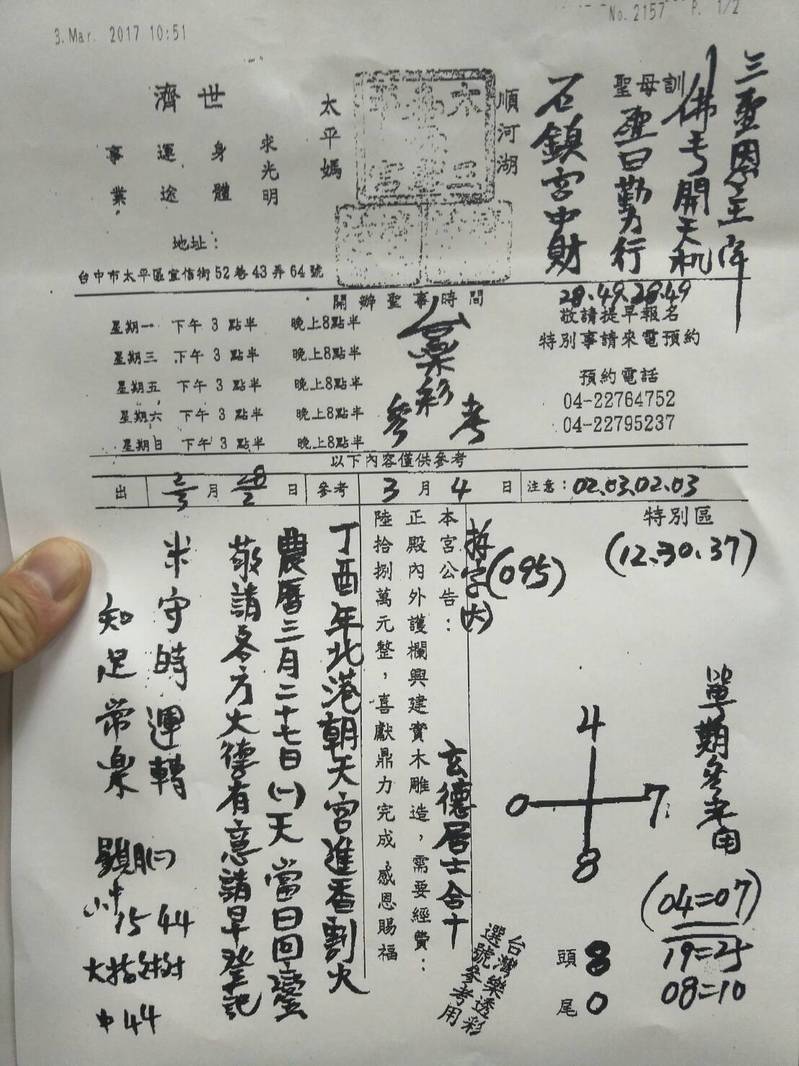 3.Mar. 2017 10:51
No.2157 P. 1/2
三聖恩主降
佛号開天机
聖母訓
聖日勤力行
石鎮宮中財
28.49.28.49
順河湖
太平媽
濟世
求光明
身體
運途
事業
地址：
台中市太平區宜信街52巷43弄64號
開辦聖事時間
星期一 下午3點半 晚上8點半
星期三 下午3點半 晚上8點半
星期五 下午3點半 晚上8點半
星期六 下午3點半 晚上8點半
星期日 下午3點半 晚上8點半
敬請提早報名
特別事請來電預約
預約電話
04-22764752
04-22795237
參考
以下內容僅供參考
出 2/3 月 28/2 日 參考 3 月 4 日 注意：02.03.02.03
特別區
(12.30.37)
(095)
單期參考用
4
0 7
8
(04=07)
19=25
08=10
頭 8
尾 0
台灣樂透彩
選號參考用
本宮公告：
正殿內外護欄興建實木雕造，需要經費：
陸拾捌萬元整，喜獻鼎力完成，感恩賜福
玄德居士合十
丁酉年北港朝天宮進香割火
農曆三月二十七日(一)天當日回鑾
敬請各方大德有意請早登記
米守時運轉
知足常樂
15 44
44